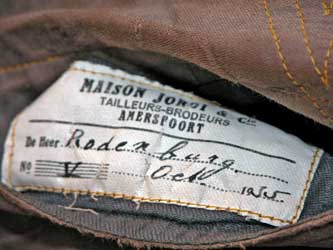 MAISON JORSI & Cie
TAILLEURS-BRODEURS
AMERSFOORT
De Heer Rodenburg
No V Oct 1955